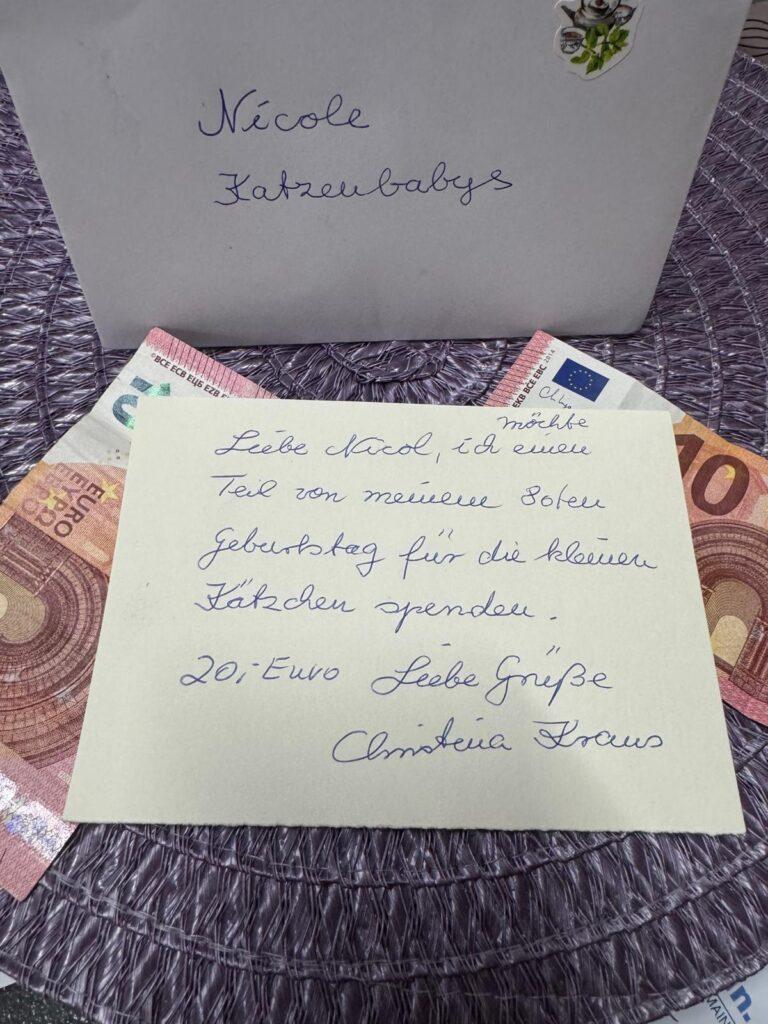 Nicole
Katzenbabys
©BCE ECB ЕЦБ EZB E
EKB BCE EBC 2014
EURO
10
möchte
Liebe Nicol, ich einen
Teil von meinem 80ten
Geburtstag für die kleinen
Kätzchen spenden.
20,- Euro Liebe Grüße
Christina Kraus
n.
MAIN